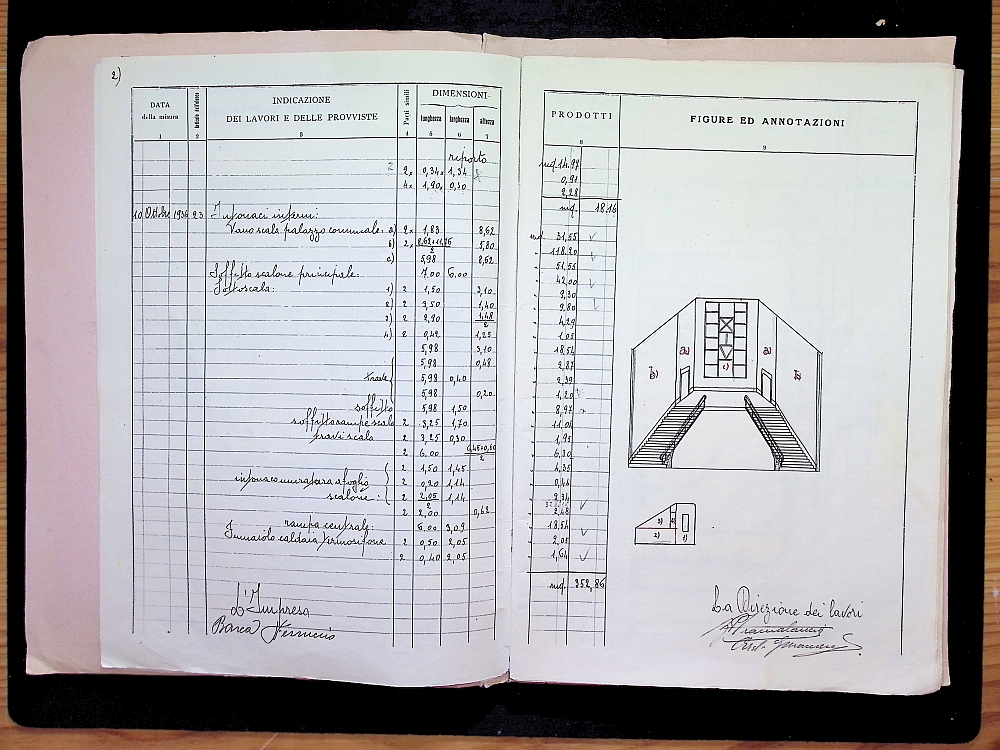 2)
DATA della misura
INDICAZIONE DEI LAVORI E DELLE PROVVISTE
Parti simili
DIMENSIONI
lunghezza larghezza altezza
1 2 3 4 5 6 7
riporto
2 × 0,34 × 1,34
4 × 1,90 × 0,30
10 Ottobre 1936 23 Intonaci interni:
Vano scala palazzo comunale: a) 2 × 1,83 8,62
b) 2 × 8,62+11,75 / 2 5,80
c) 5,98 8,62
Soffitto scalone principale: 7.00 6.00
Sottoscala: 1) 2 1,50 3,10
2) 2 3,50 1,40
3) 2 2,90 1,48 / 2
4) 2 0,42 1,25
5,98 3,10
5,98 0,48
trave 5,98 0,40
5,98 0,20
soffitto 5,98 1,50
soffitto rampe scala 2 3,25 1,70
travi scala 2 3,25 0,30
2 6.00 0,45+0,60 / 2
2 1,50 1,45
intonaco muratura a foglio 2 0,20 1,14
scalone: 2 2,05 / 2 1,14
2 2,00 0,62
rampa centrale: 6.00 3,09
caldaia termosifone 2 0,50 2,05
2 0,40 2,05
L'Impresa
Barca
PRODOTTI
FIGURE ED ANNOTAZIONI
8 9
mq. 14.97
0,91
2,28
mq. 18.16
mq. 31,55
118.20
51,55
42,00
9,30
9,80
4,29
1,05
18,54
2,87
2,39
1,20
8,97
11,05
1,95
6,30
4,35
0,46
2,34
2,48
18,54
2,05
1,64
mq. 352,86
b) a) c) a) b)
3) 4) 2) 1)
La Direzione dei lavori